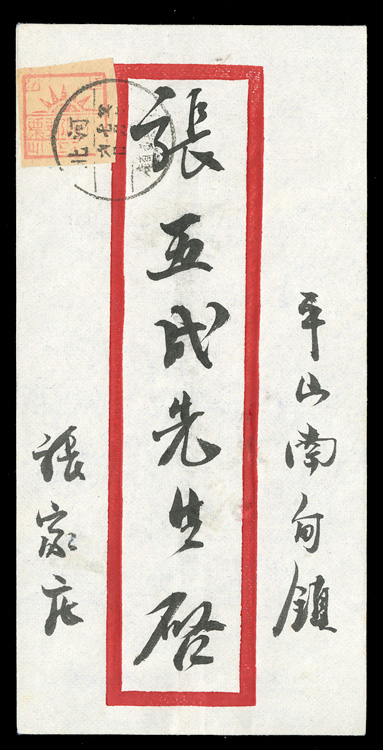 平山南甸鎮
張五成先生啓
張家庄
河北